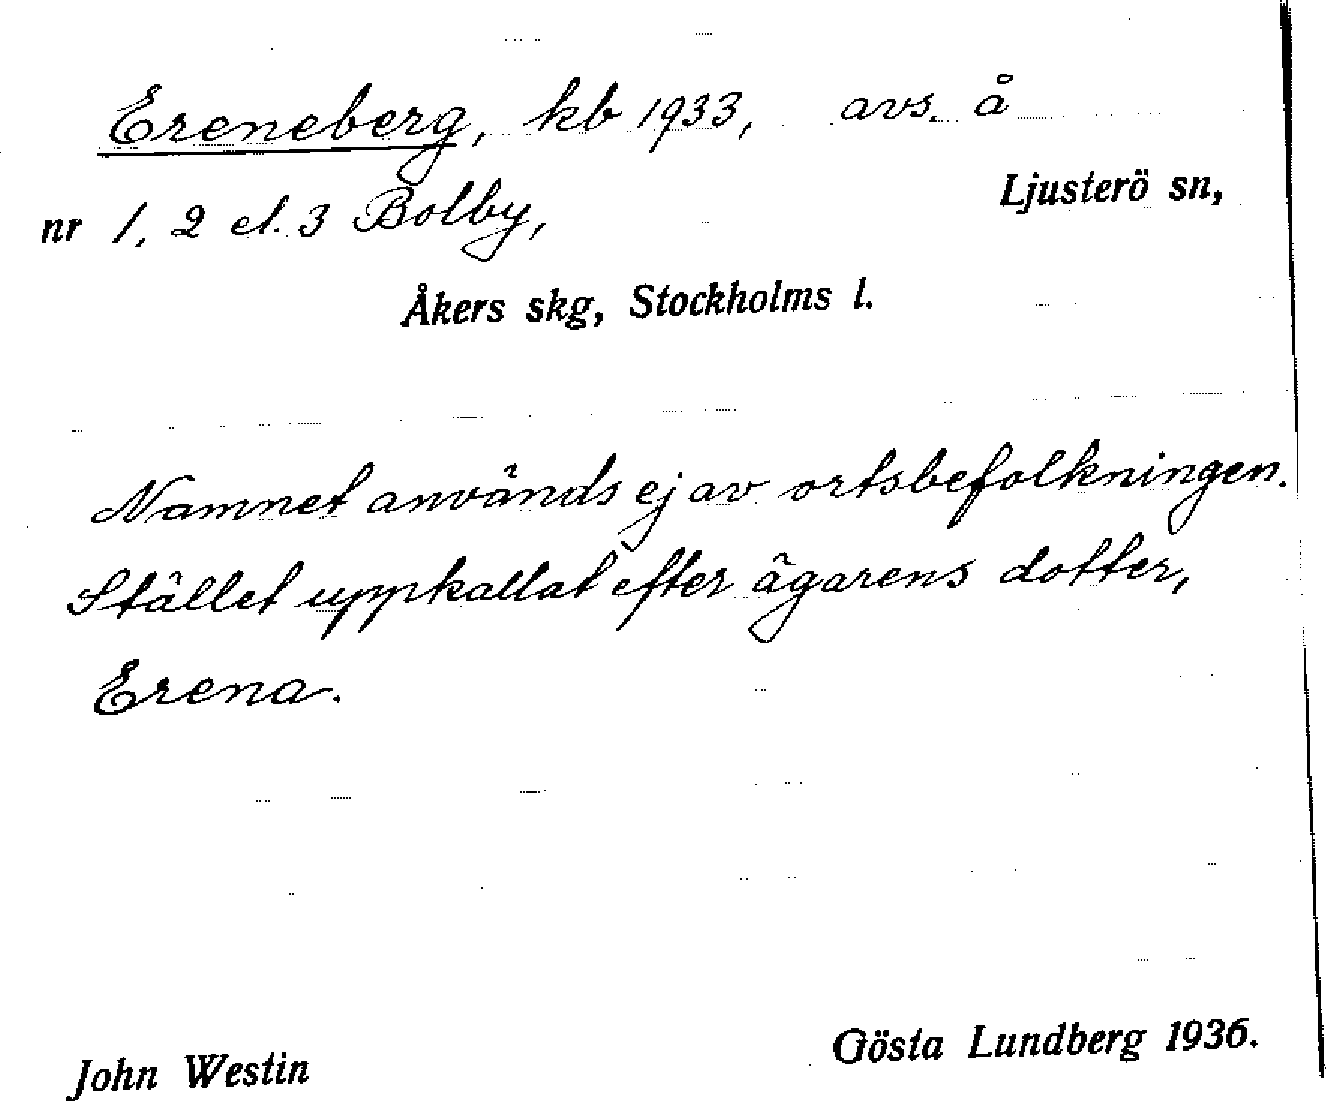 Ereneberg, kb 1933, avs. å
Ljusterö sn,
nr 1, 2 el. 3 Bolby,
Åkers skg, Stockholms l.
Namnet används ej av ortsbefolkningen.
Stället uppkallat efter ägarens dotter,
Erena.
John Westin
Gösta Lundberg 1936.